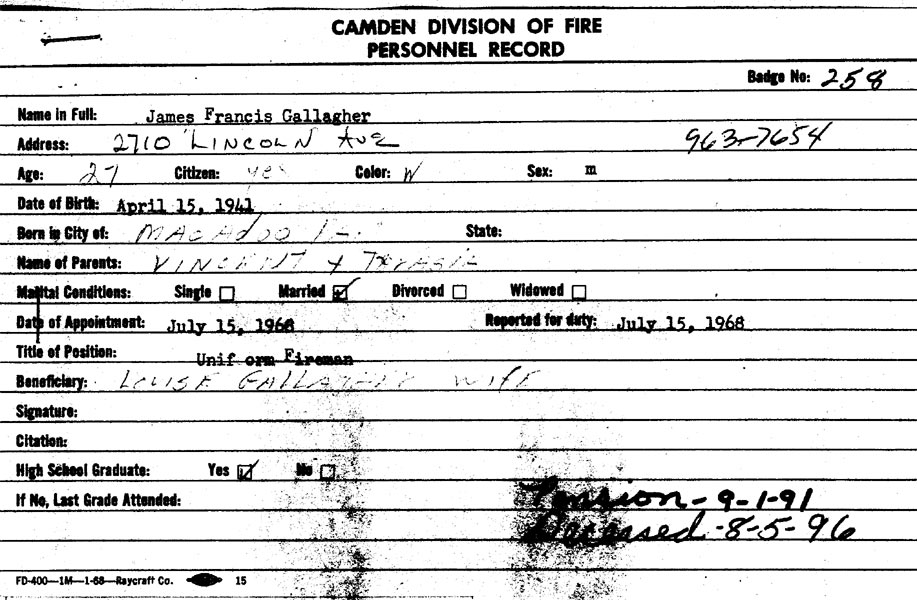 CAMDEN DIVISION OF FIRE
PERSONNEL RECORD
Badge No: 258
Name in Full: James Francis Gallagher
Address: 2710 LINCOLN AVE 963-7654
Age: 27 Citizen: yes Color: W Sex: m
Date of Birth: April 15, 1941
Born in City of: MACADOO PA. State:
Name of Parents: VINCENT &
Marital Conditions: Single Married Divorced Widowed
Date of Appointment: July 15, 1968 Reported for duty: July 15, 1968
Title of Position: Unif orm Fireman
Beneficiary: LOUISE GALLAGHER WIFE
Signature:
Citation:
High School Graduate: Yes No
If No, Last Grade Attended:
Pension - 9-1-91
Deceased - 8-5-96
FD-400—1M—1-68—Raycraft Co. 15